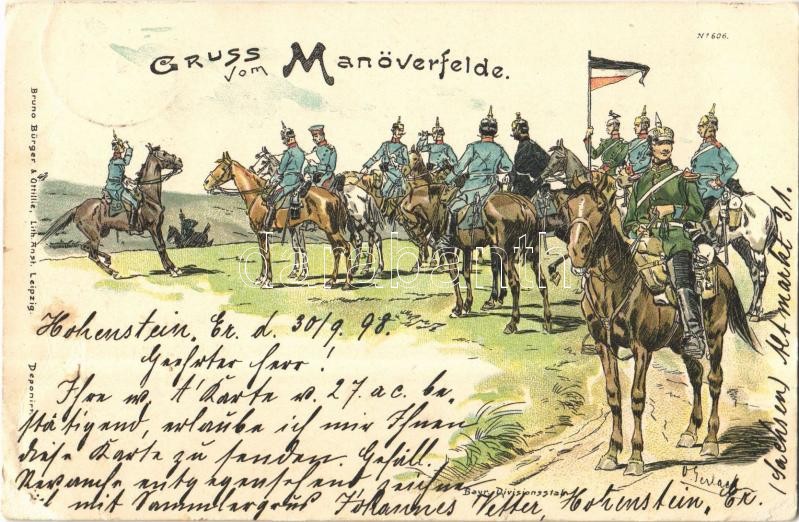 Gruss vom Manöverfelde.
No 606.
Bruno Bürger & Ottillie, Lith. Anst. Leipzig.
darabanth
Hohenstein, Er. d. 30/9. 98.
Geehrter Herr!
Ihre w. Karte v. 27. a c. be-
stätigend, erlaube ich mir Ihnen
diese Karte zu senden. Gefäll.
Revanche entgegensehend zeichne
mit Sammlergruss Johannes Vetter, Hohenstein, Er.
(Sachsen) Altmarkt 31.
Bayr. Divisionsstab
O. Gerlach